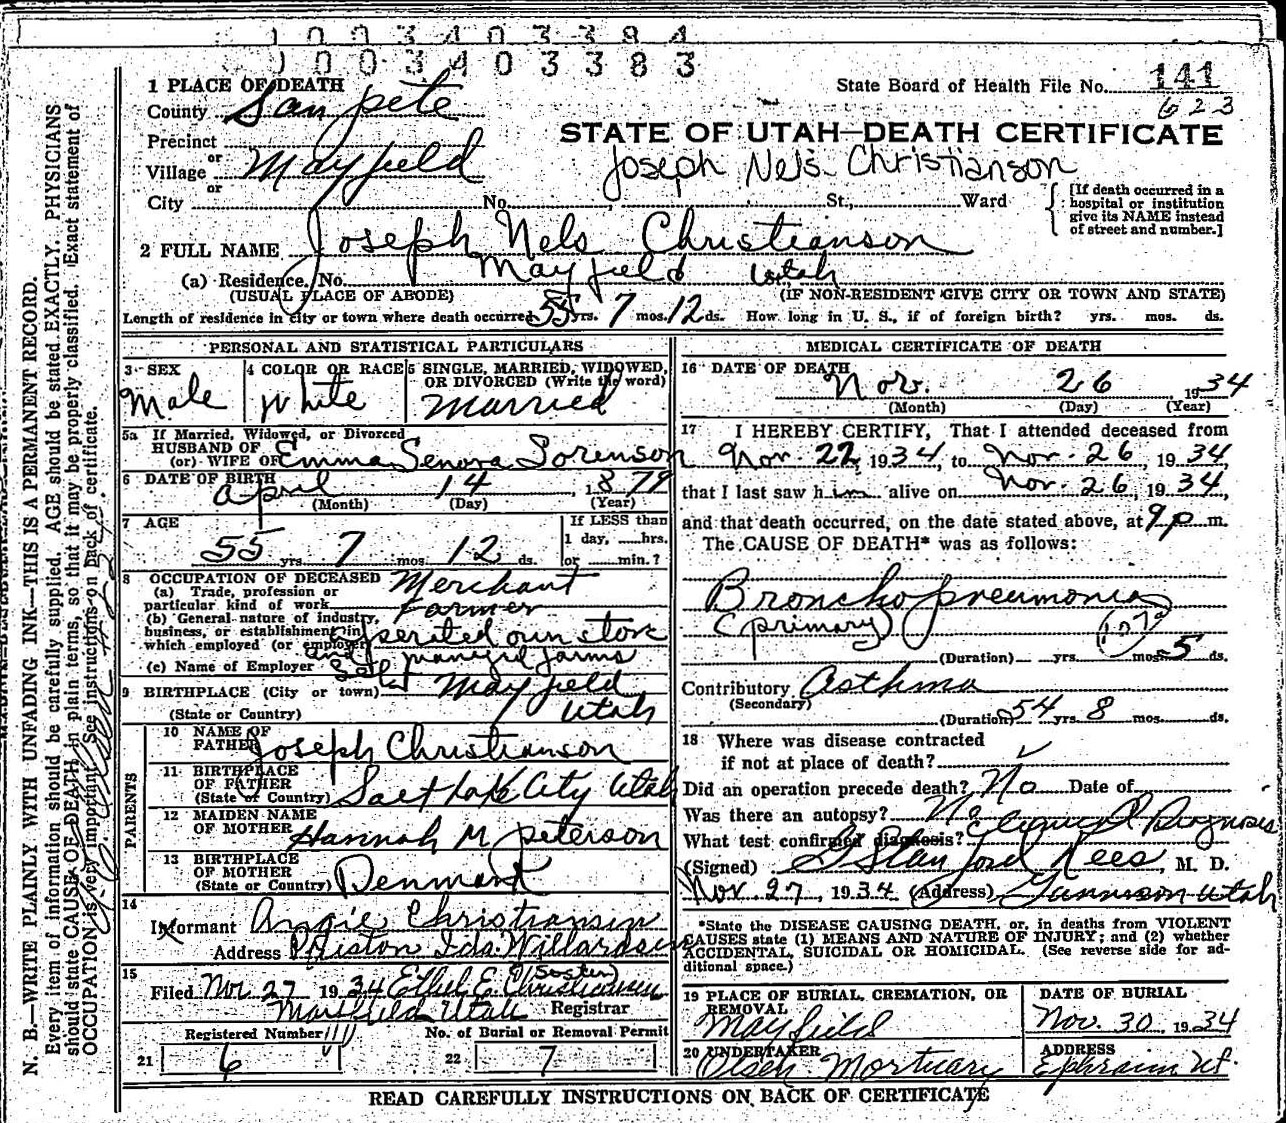 1 0 0 3 4 0 3 3 8 4
0 0 0 3 4 0 3 3 8 3
1 PLACE OF DEATH
State Board of Health File No. 141
County San pete
623
STATE OF UTAH—DEATH CERTIFICATE
Precinct
or
Village Mayfield
Joseph Nels Christianson
or
City No. , St., Ward
[If death occurred in a hospital or institution give its NAME instead of street and number.]
2 FULL NAME Joseph Nels Christianson
(a) Residence. No. Mayfield Utah
(USUAL PLACE OF ABODE) (IF NON-RESIDENT GIVE CITY OR TOWN AND STATE)
Length of residence in city or town where death occurred 55 yrs. 7 mos. 12 ds. How long in U. S., if of foreign birth? yrs. mos. ds.
PERSONAL AND STATISTICAL PARTICULARS
3 SEX
Male
4 COLOR OR RACE
White
5 SINGLE, MARRIED, WIDOWED, OR DIVORCED (Write the word)
Married
5a If Married, Widowed, or Divorced
HUSBAND OF
(or) WIFE OF Emma Senora Sorenson
6 DATE OF BIRTH
April 14, 1879
(Month) (Day) (Year)
7 AGE
55 yrs. 7 mos. 12 ds.
If LESS than
1 day, hrs.
or min.?
8 OCCUPATION OF DECEASED
(a) Trade, profession or particular kind of work Merchant
Farmer
(b) General nature of industry, business, or establishment in which employed (or employer)
operated own store
and managed farms
(c) Name of Employer Self
9 BIRTHPLACE (City or town) Mayfield
(State or Country) Utah
PARENTS
10 NAME OF FATHER Joseph Christianson
11 BIRTHPLACE OF FATHER
(State or Country) Salt Lake City Utah
12 MAIDEN NAME OF MOTHER Hannah M Peterson
13 BIRTHPLACE OF MOTHER
(State or Country) Denmark
14
Informant Angie Christiansen
Address Preston Ida.
15
Filed Nov 27 1934 Ethel E. Christiansen
Mayfield Utah Registrar
Registered Number
21 6
No. of Burial or Removal Permit
22 7
MEDICAL CERTIFICATE OF DEATH
16 DATE OF DEATH
Nov. 26, 1934
(Month) (Day) (Year)
17 I HEREBY CERTIFY, That I attended deceased from
Nov. 22, 1934, to Nov. 26, 1934,
that I last saw him alive on Nov. 26, 1934,
and that death occurred, on the date stated above, at 9 p m.
The CAUSE OF DEATH* was as follows:
Bronchopneumonia
(primary) 107a
(Duration) yrs. mos. 5 ds.
Contributory Asthma
(Secondary)
(Duration) 54 yrs. 8 mos. ds.
18 Where was disease contracted
if not at place of death?
Did an operation precede death? No Date of
Was there an autopsy? No
What test confirmed diagnosis? Clinical Diagnosis
(Signed) G Stanford Rees, M. D.
Nov. 27, 1934 (Address) Gunnison Utah
*State the DISEASE CAUSING DEATH, or, in deaths from VIOLENT
CAUSES state (1) MEANS AND NATURE OF INJURY; and (2) whether
ACCIDENTAL, SUICIDAL OR HOMICIDAL. (See reverse side for additional space.)
19 PLACE OF BURIAL, CREMATION, OR REMOVAL
Mayfield
DATE OF BURIAL
Nov. 30, 1934
20 UNDERTAKER
Olsen Mortuary
ADDRESS
Ephraim Ut.
READ CAREFULLY INSTRUCTIONS ON BACK OF CERTIFICATE
N. B.—WRITE PLAINLY WITH UNFADING INK—THIS IS A PERMANENT RECORD.
Every item of information should be carefully supplied. AGE should be stated EXACTLY. PHYSICIANS
should state CAUSE OF DEATH in plain terms, so that it may be properly classified. Exact statement of
OCCUPATION is very important. See instructions on back of certificate.